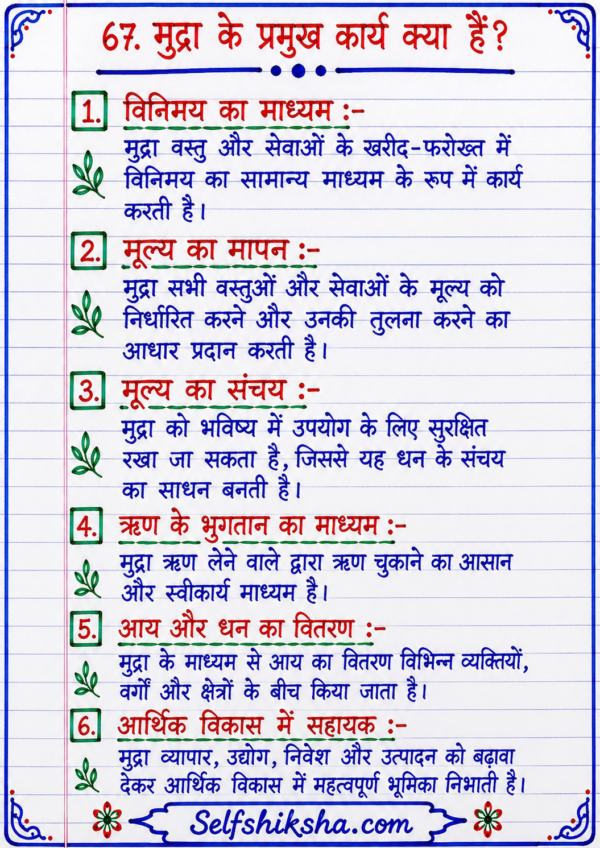 67. मुद्रा के प्रमुख कार्य क्या हैं?
1. विनिमय का माध्यम :-
मुद्रा वस्तु और सेवाओं के खरीद-फरोख्त में
विनिमय का सामान्य माध्यम के रूप में कार्य
करती है।
2. मूल्य का मापन :-
मुद्रा सभी वस्तुओं और सेवाओं के मूल्य को
निर्धारित करने और उनकी तुलना करने का
आधार प्रदान करती है।
3. मूल्य का संचय :-
मुद्रा को भविष्य में उपयोग के लिए सुरक्षित
रखा जा सकता है, जिससे यह धन के संचय
का साधन बनती है।
4. ऋण के भुगतान का माध्यम :-
मुद्रा ऋण लेने वाले द्वारा ऋण चुकाने का आसान
और स्वीकार्य माध्यम है।
5. आय और धन का वितरण :-
मुद्रा के माध्यम से आय का वितरण विभिन्न व्यक्तियों,
वर्गों और क्षेत्रों के बीच किया जाता है।
6. आर्थिक विकास में सहायक :-
मुद्रा व्यापार, उद्योग, निवेश और उत्पादन को बढ़ावा
देकर आर्थिक विकास में महत्वपूर्ण भूमिका निभाती है।
Selfshiksha.com